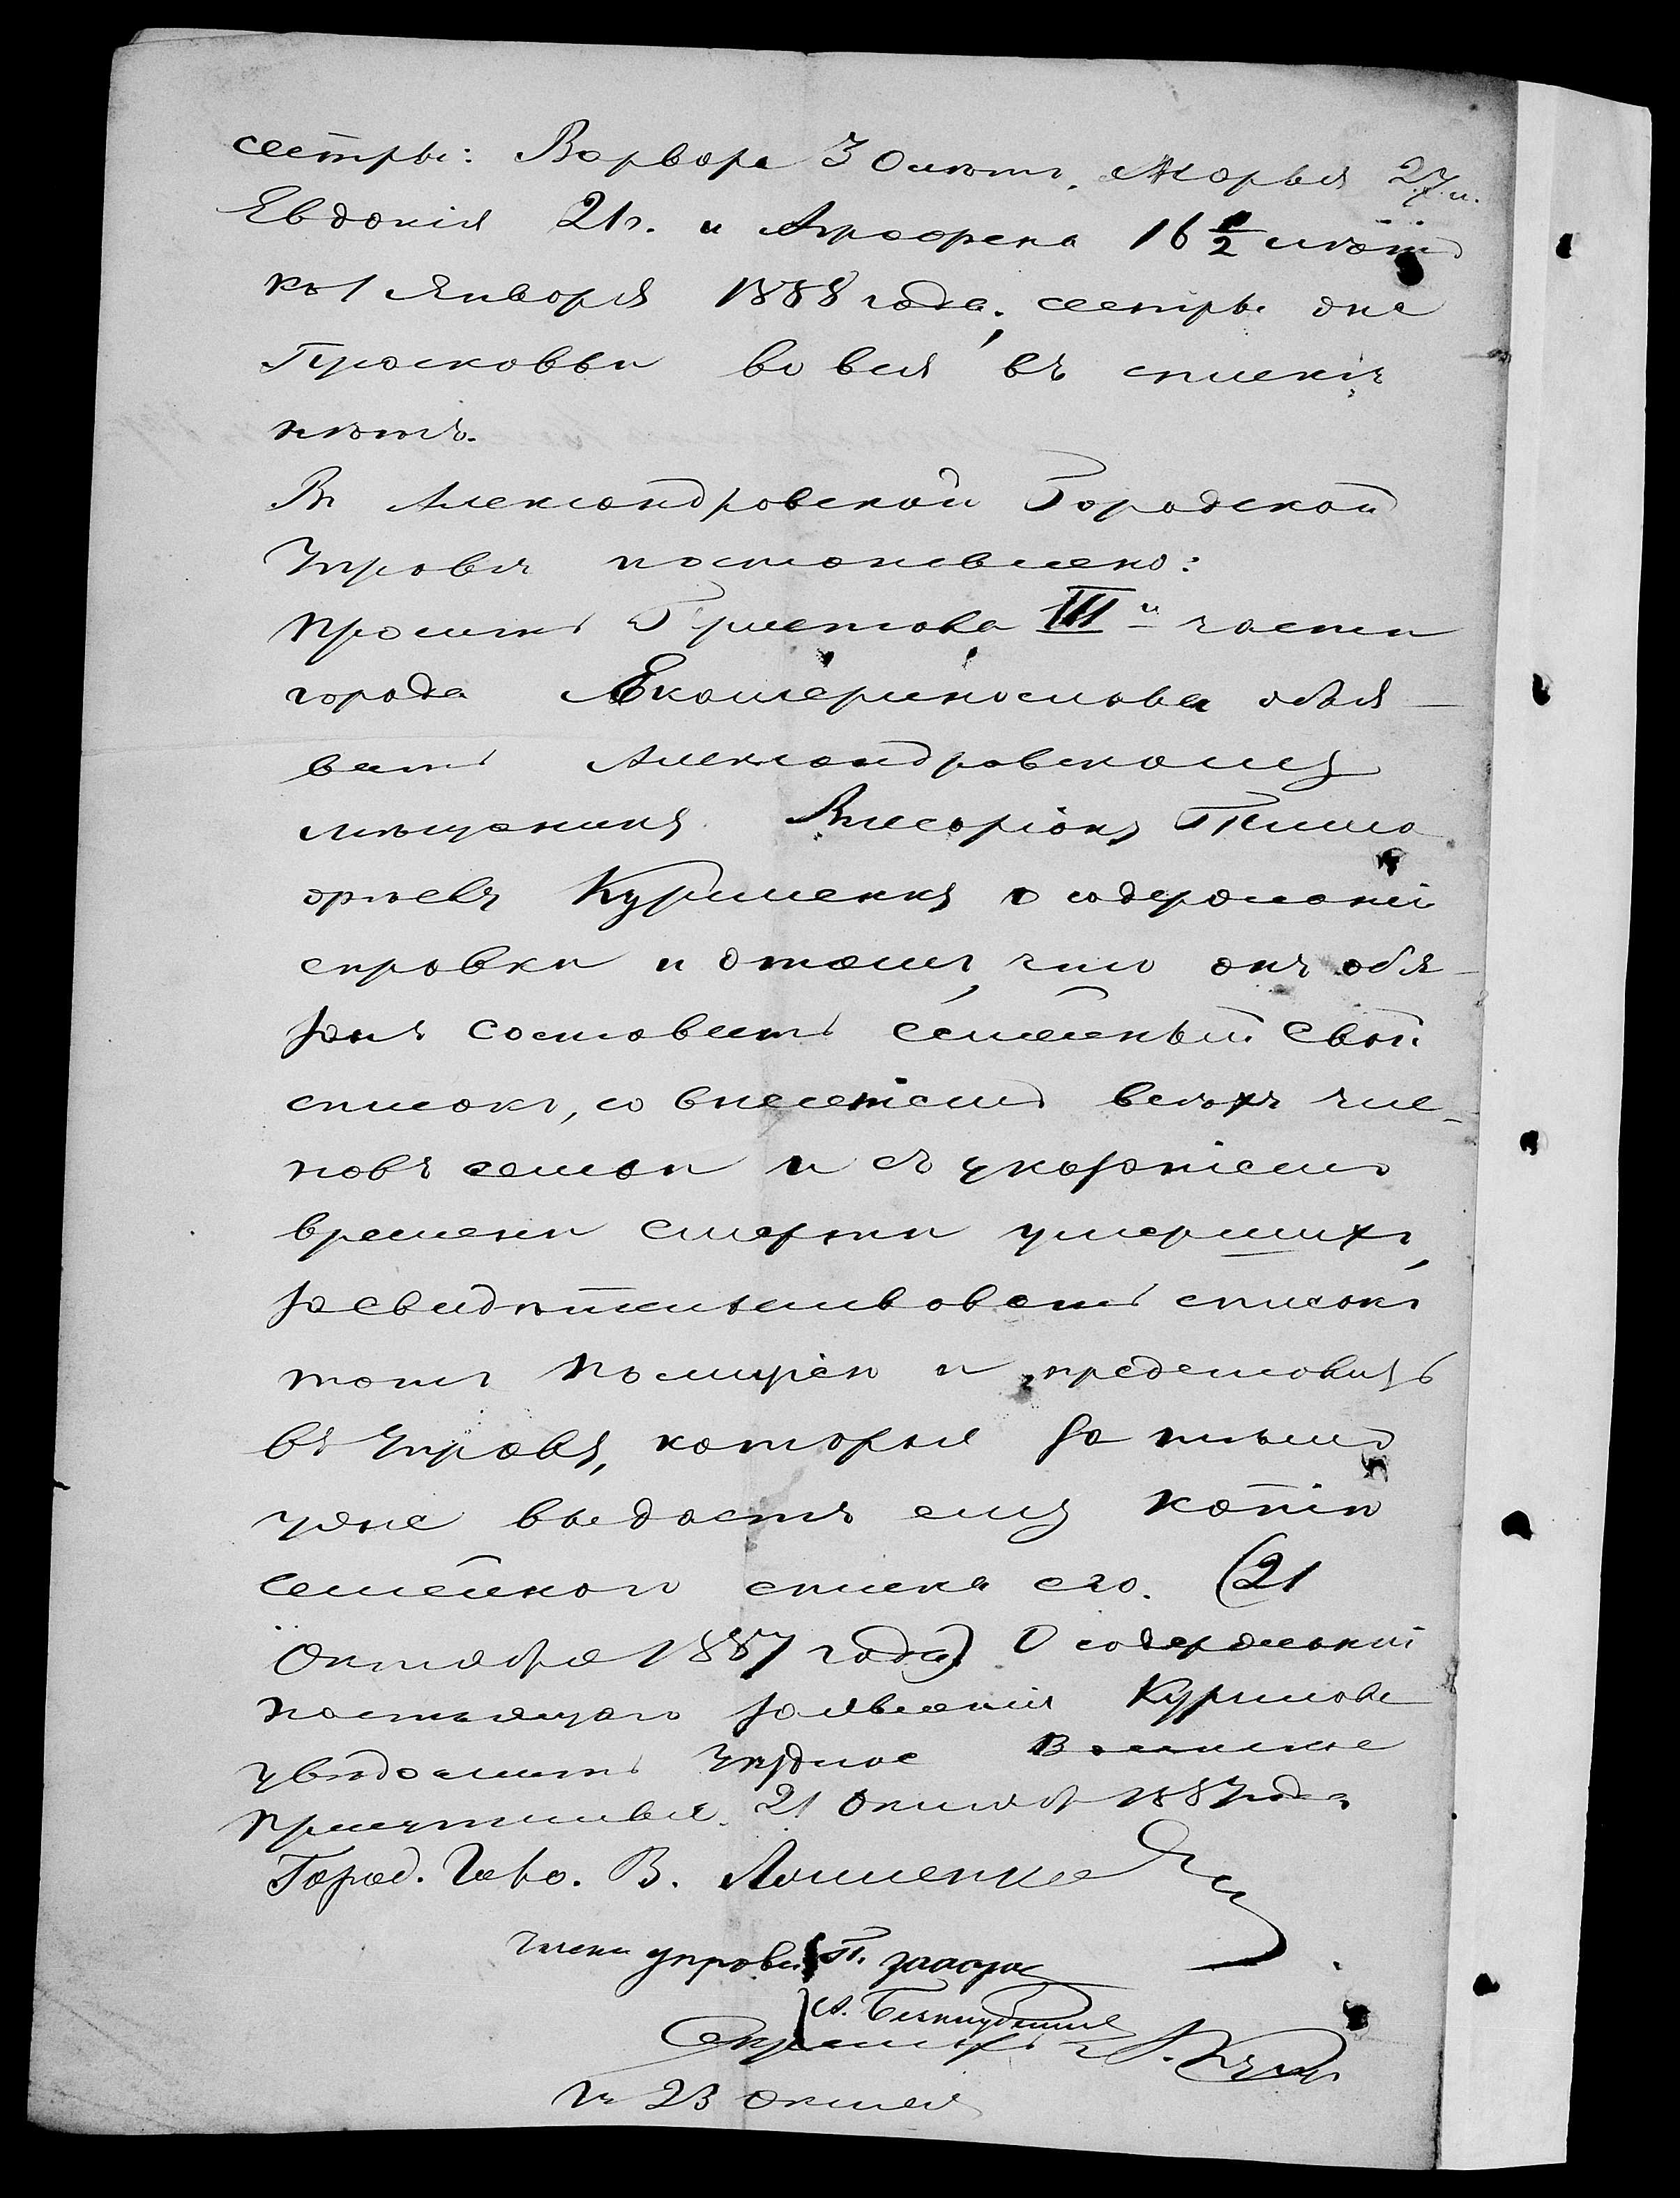 сестры: Варвара 30 лѣтъ, Марья 27 л.
Евдокія 21 г. и Аграфена 16 1/2 лѣтъ
къ 1 Января 1888 года; сестры же
Прасковьи вовся въ спискѣ
нѣтъ.
Въ Александровской Городской
Управѣ постановлено:
просить Пристава III й части
города Екатеринослава объя-
вить Александровскому
мѣщанину Виссаріону Тимо
фѣеву Куриленку о содержаніи
справки и о томъ, что онъ обя-
занъ составить семейный свой
списокъ, со внесеніемъ всѣхъ чле-
новъ семьи и съ указаніемъ
времени смерти умершихъ,
засвидѣтельствовать списокъ
тотъ полиціею и представить
въ Управу, которая за тѣмъ
уже выдастъ ему копію
семейного списка его. (21
Октября 1887 года) О содержаніи
настоящаго заявленія Курилова
увѣдомить Уѣздное Воинское
Присутствіе. 21 Октяб 1887 года
Город. Голо. В. Ляшенко
Члены управы П.
А.
Секретарь
23 Октяб